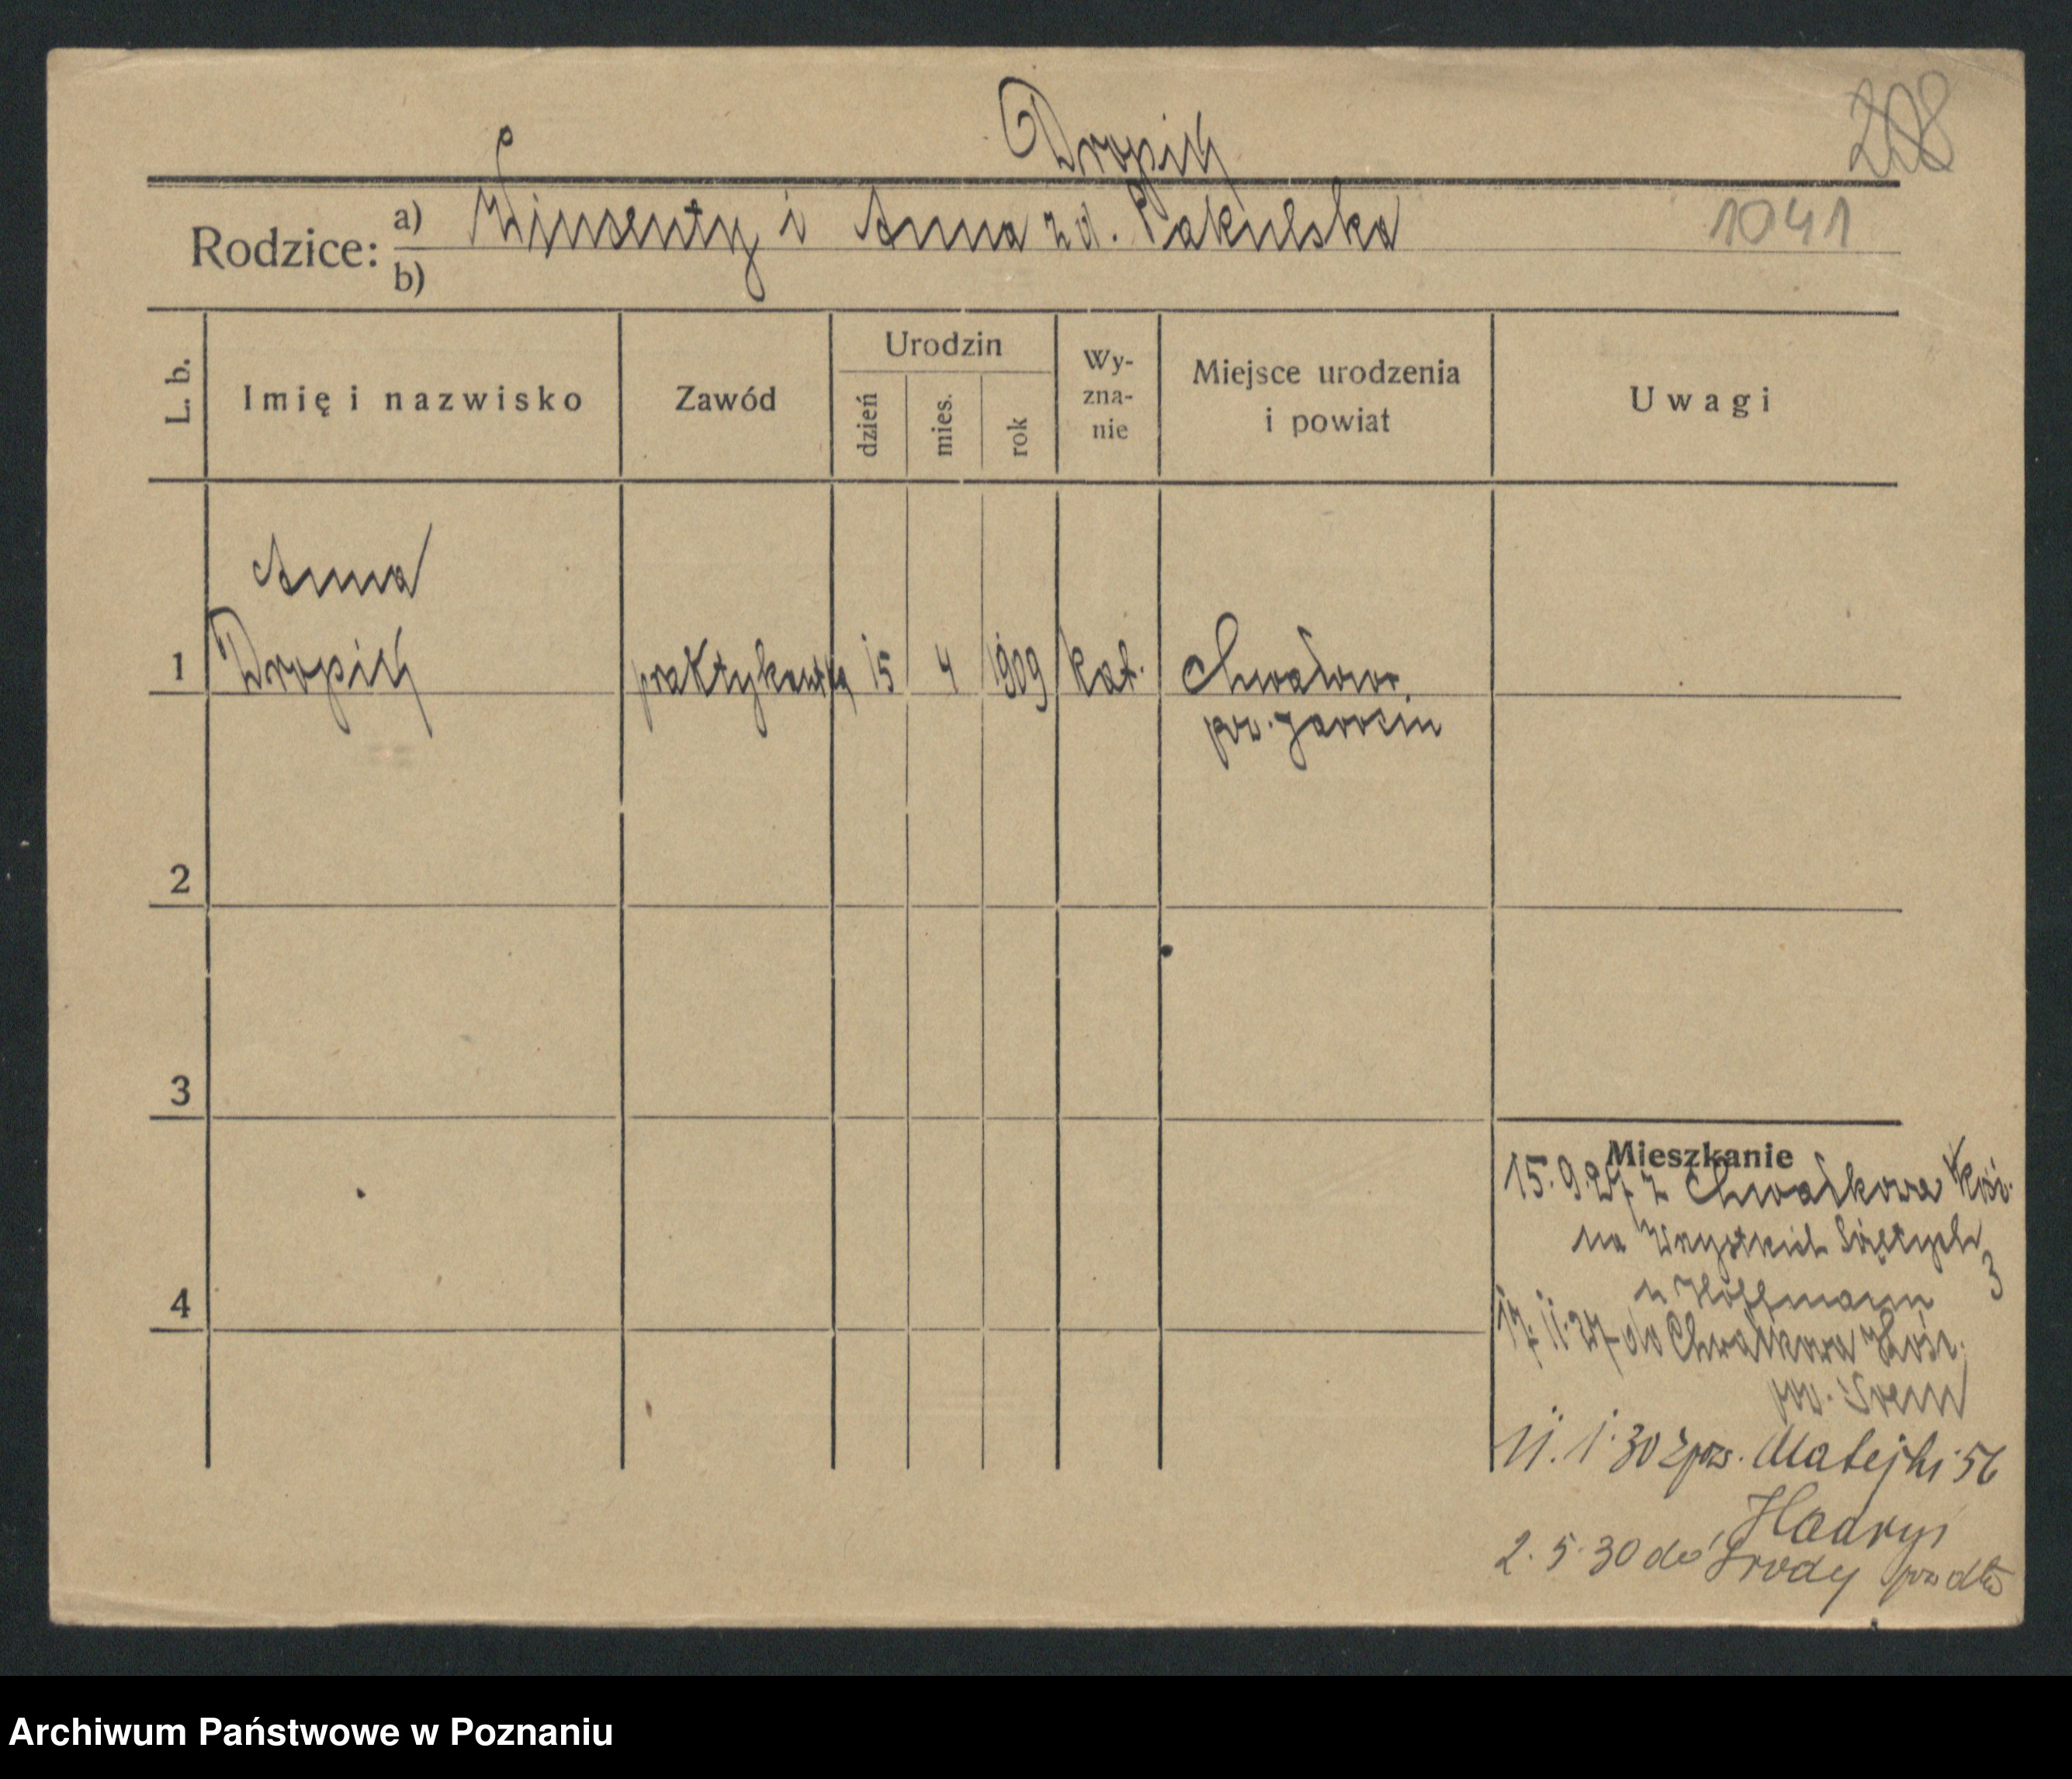 Dropik
208
Rodzice: a) Winsenty i Anna zd. Pakulska
1041
b)
L. b.
Imię i nazwisko
Zawód
Urodzin
dzień
mies.
rok
Wy-
zna-
nie
Miejsce urodzenia
i powiat
Uwagi
Anna
1 Dropik praktykantka 15 4 1909 kat. Chwałowo
pow. Jarocin
2
3
4
Mieszkanie
15.9.27 z Chwałkowa Kość.
na Wszystkich Świętych
3
u Hoffmann
17.11.27 do Chwałkowa Kość.
pow. Śrem
11.1.30 Matejki 56
2.5.30 do Środy
Archiwum Państwowe w Poznaniu